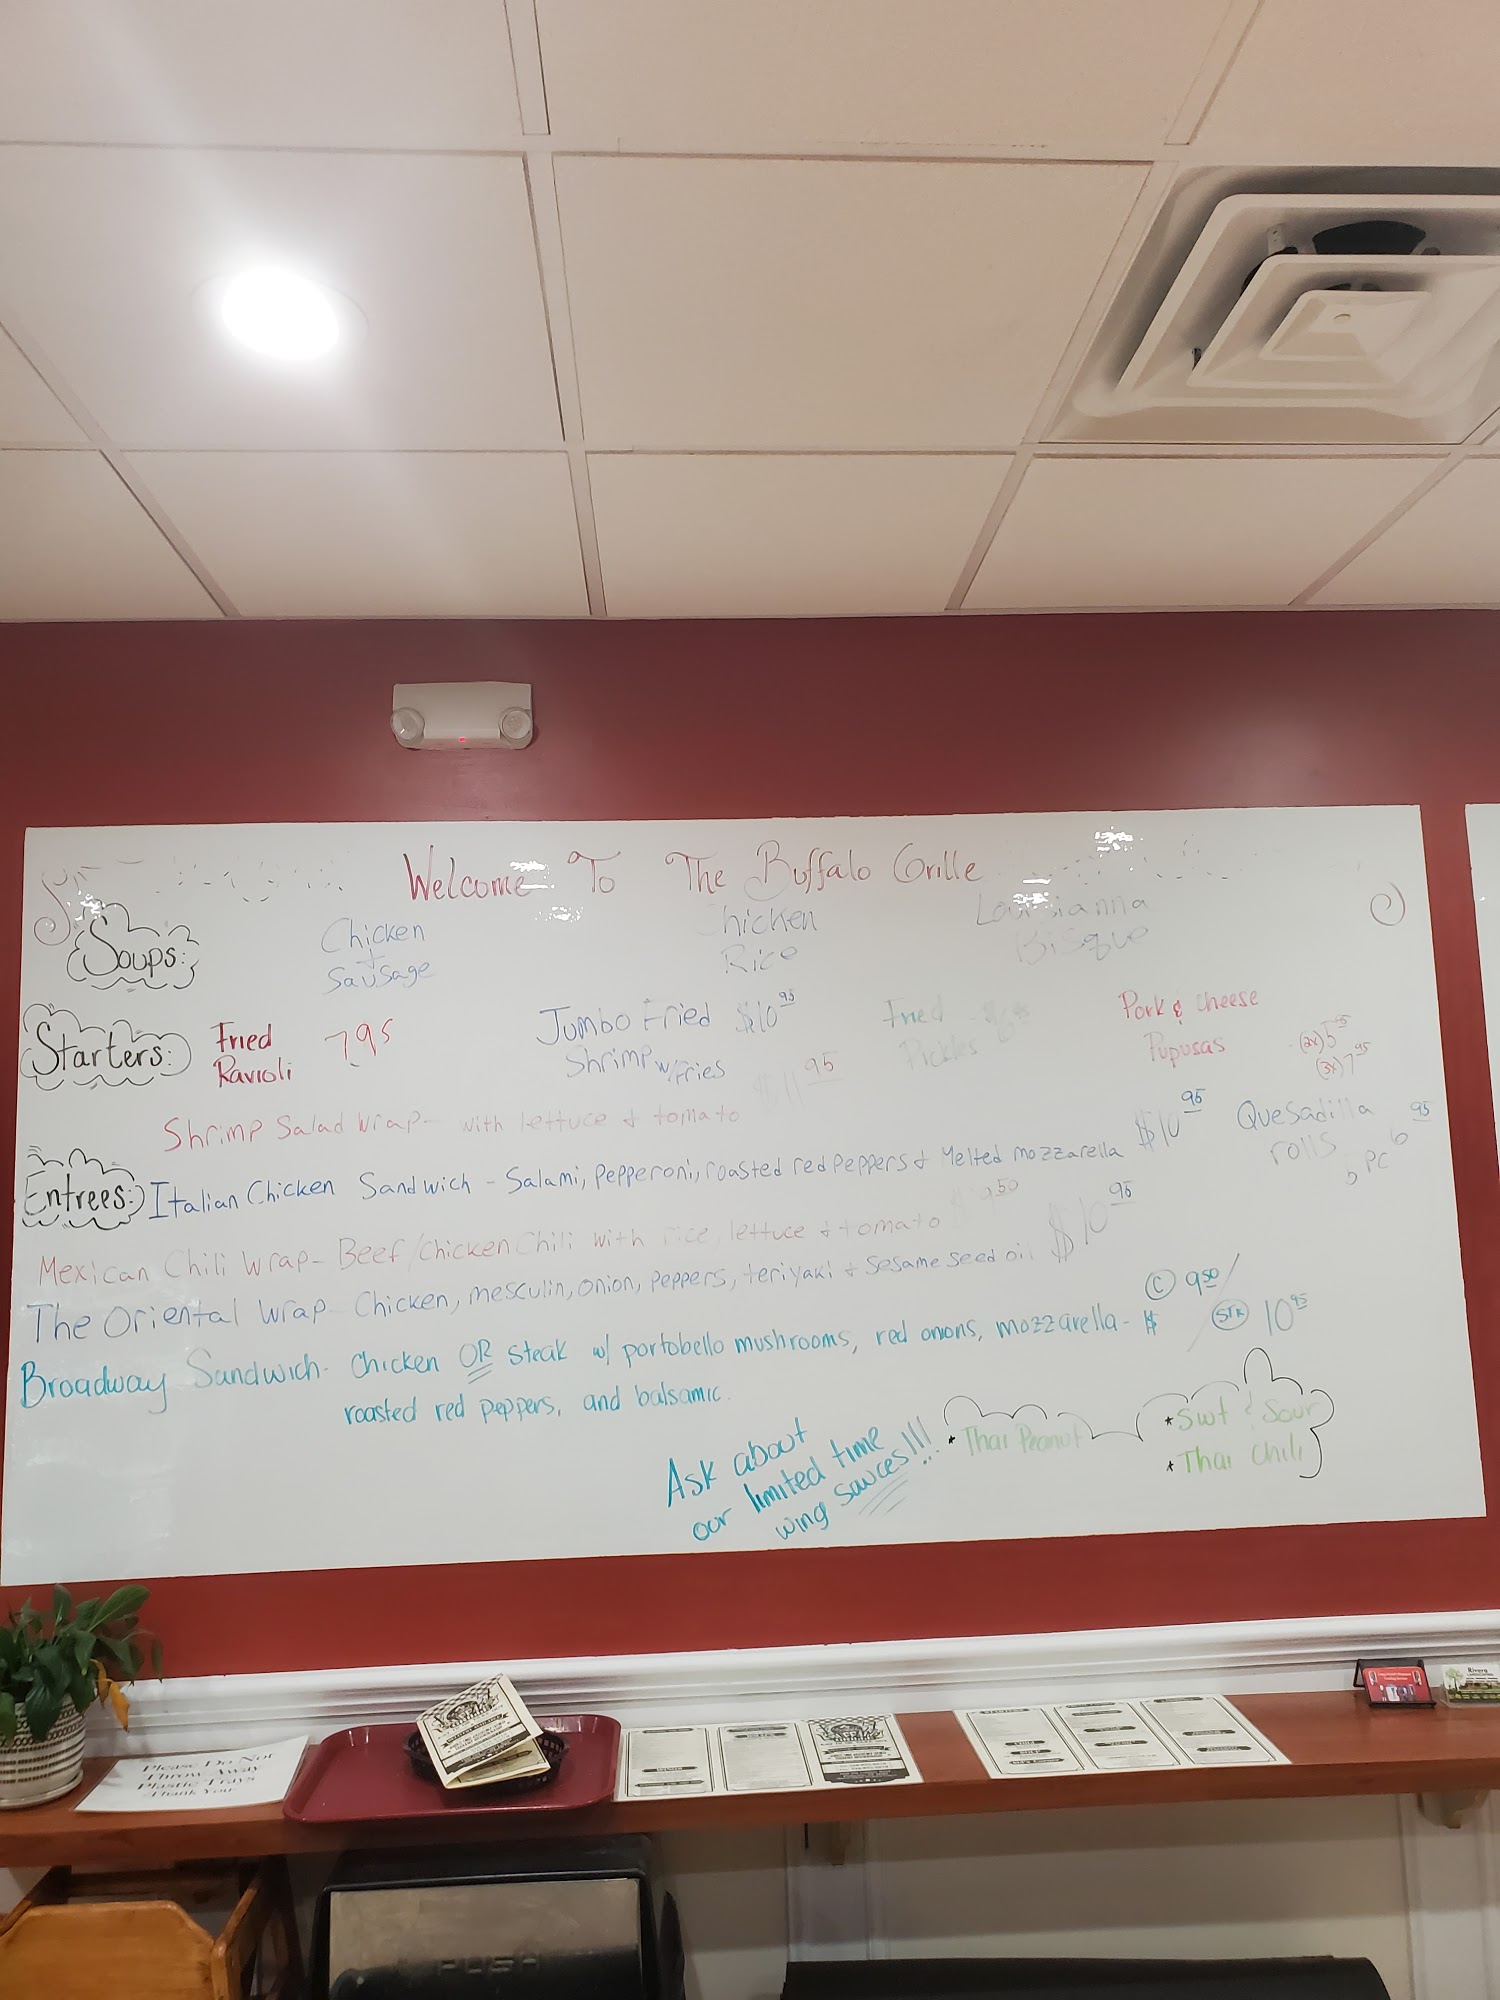 Welcome To The Buffalo Grille
Soups:
Chicken
+
Sausage
Chicken
Rice
Louisianna
Bisque
Starters:
Fried
Ravioli
7.95
Jumbo Fried $10 95
Shrimp w/Fries
Fried
Pickles
Pork & Cheese
Pupusas
(2x) 5 95
(3x) 7 95
Shrimp Salad Wrap- with lettuce & tomato $11 95
Quesadilla
rolls
6 95
Entrees:
Italian Chicken Sandwich - Salami, pepperoni, roasted red peppers & Melted mozzarella $10 95
Mexican Chili Wrap- Beef/Chicken Chili with rice, lettuce & tomato
The Oriental Wrap- Chicken, mesculin, onion, peppers, teriyaki & sesame seed oil $10 95
Broadway Sandwich- Chicken OR Steak w/ portobello mushrooms, red onions, mozzarella- $ (C) 9 50 / (STK) 10 95
roasted red peppers, and balsamic.
Ask about
our limited time
wing sauces!!!
* Thai Peanut
* Swt & Sour
* Thai Chili
Please Do Not
Throw Away
Plastic Trays
Thank You
Rivera
PUSH